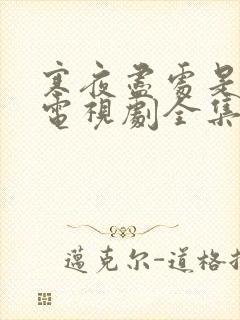 寒夜盡處是
電視劇全集
邁克尔-道格拉